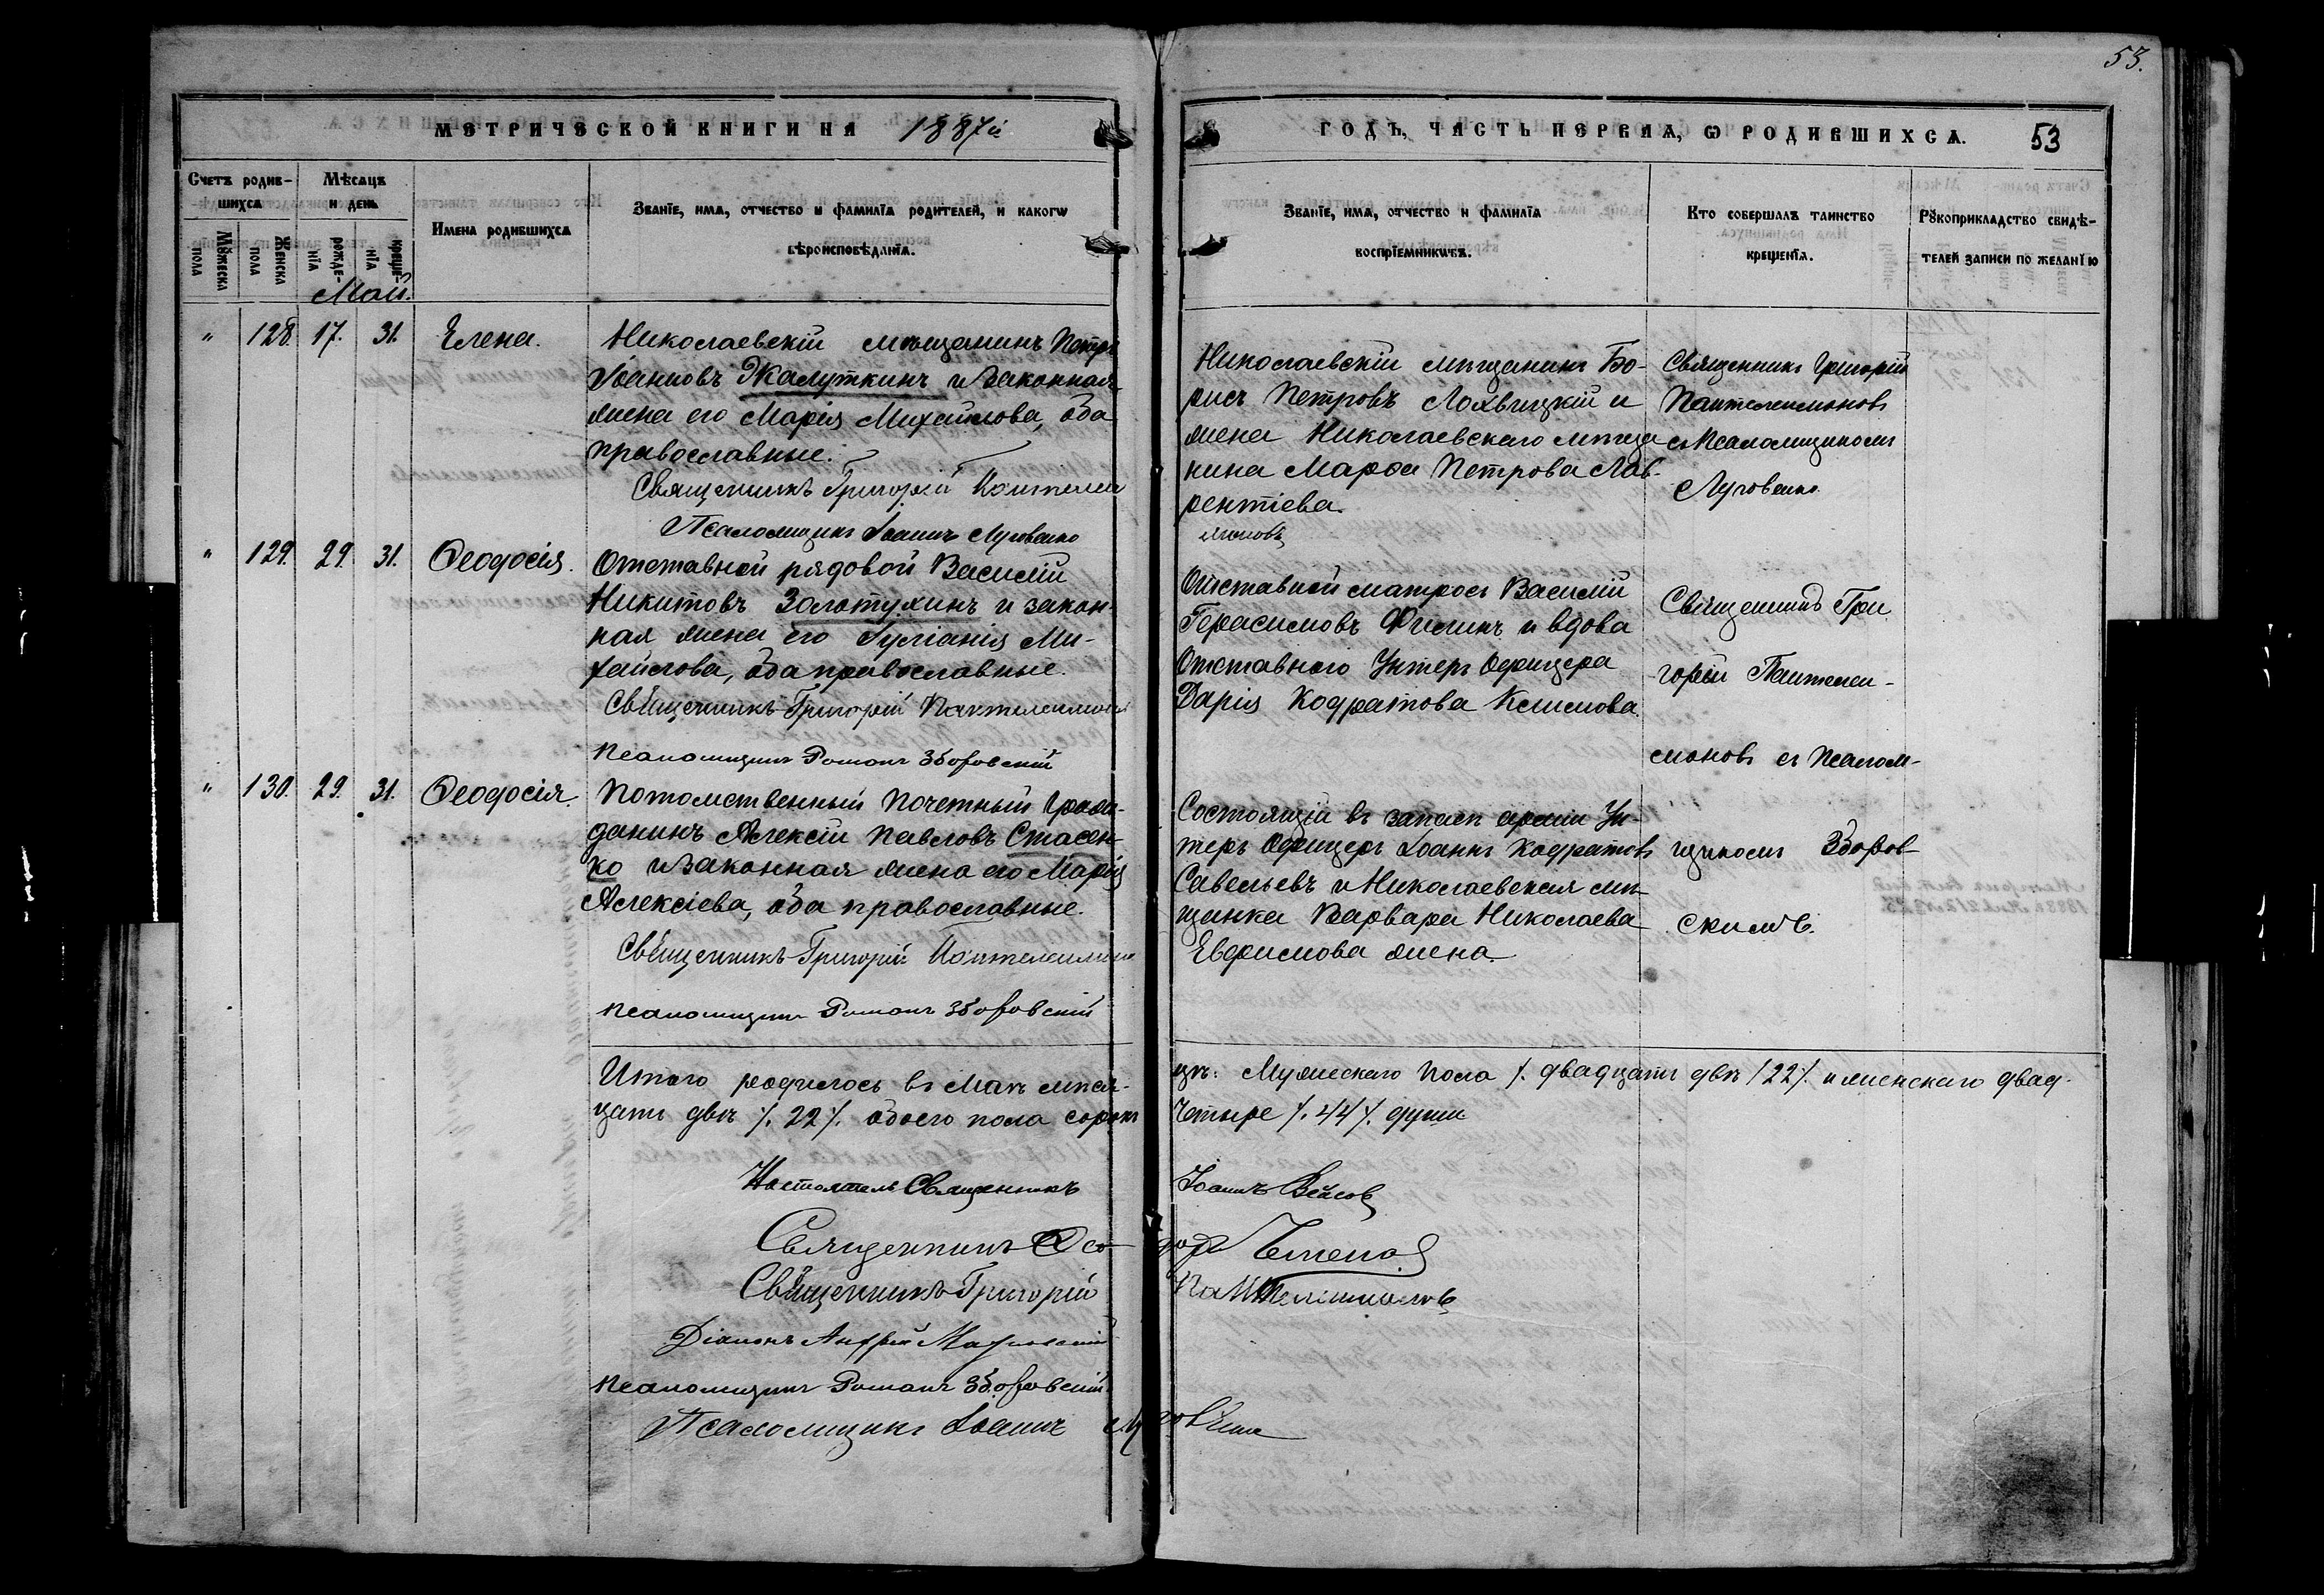 53.
МЕТРИЧЕСКОЙ КНИГИ НА 1887й
ГОДЪ, ЧАСТЬ ПЕРВАЯ, Ѡ РОДИВШИХСѦ. 53
Счетъ родив-
шихсѧ
Мѣсяцъ
и день
Мꙋжеска
пола
Женска
пола
рожде-
нїѧ
креще-
нїѧ
Имена родившихсѧ
Званїе, имѧ, отчество и фамилїѧ родителей, и какогѡ
вѣроисповѣданїѧ.
Званїе, имѧ, отчество и фамилїѧ
воспрїемникѡвъ.
Кто совершалъ таинство
крещенїѧ.
Рꙋкоприкладство свидѣ-
телей записи по желанїю
Май.
" 128. 17. 31. Елена.
Николаевскій мѣщанинъ Петръ
Іоанновъ Жалуткинъ и законная
жена его Марія Михайлова, оба
православные.
Священникъ Григорій Пантелеи
Псаломщикъ Іоаннъ Луговенко
Николаевскій мѣщанинъ Бо-
рисъ Петровъ Лохвицкій и
жена Николаевскаго мѣща
нина Марѳа Петрова Лав-
рентіева.
моновъ
Священникъ Григорій
Пантелеимоновъ
съ Псаломщикомъ
Луговенко.
" 129. 29. 31. Ѳеодосія.
Отставной рядовой Василій
Никитовъ Золотухинъ и закон-
ная жена его Іуліанія Ми-
хайлова, оба православные.
Священникъ Григорій Пантелеимоновъ
Псаломщикъ Романъ Зборовскій
Отставной матросъ Василій
Герасимовъ Филинъ и вдова
Отставного Унтеръ Офицера
Дарія Кодратова Климова.
Священникъ Гри
горій Пантелеи-
моновъ съ Псалом-
щикомъ Зборов-
скимъ.
" 130. 29. 31. Ѳеодосія.
Потомственный Почетный Граж-
данинъ Алексій Павловъ Стасен-
ко и законная жена его Марія
Алексіева, оба православные.
Священникъ Григорій Пантелеимонов
Псаломщикъ Романъ Зборовскій
Состоящій въ запасѣ арміи Ун-
теръ Офицеръ Іоаннъ Кодратовъ
Савельевъ и Николаевская мѣ-
щанка Варвара Николаева
Евфимова жена.
Итого родилось въ Маѣ мѣся-
цѣ: Мужескаго пола /. двадцать двѣ /22/. и женскаго двад-
цать двѣ /. 22 /. обоего пола сорокъ
четыре /. 44 /. души
Настоятель Священникъ Іоаннъ
Священникъ Ѳео
доръ
Священникъ Григорій Пантелеимоновъ
Діаконъ Андрей
Псаломщикъ Романъ Зборовскій
Псаломщикъ Іоаннъ Луговенко